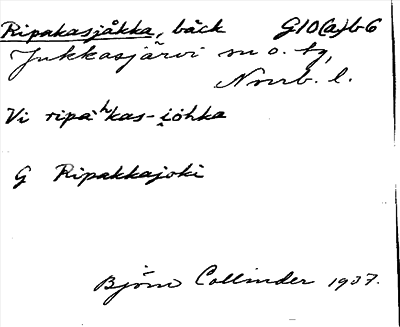 Ripakasjåkka, bäck G10(a)b6
Jukkasjärvi sn o. tg,
Norrb. l.
Vi ripaʰkas-i̯öhka
G Ripakkajoki
Björn Collinder 1937.